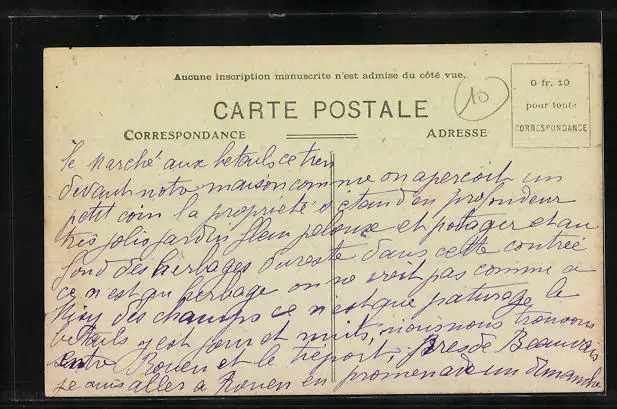 Aucune inscription manuscrite n'est admise du côté vue.
CARTE POSTALE
CORRESPONDANCE
ADRESSE
0 fr. 10
pour toute
CORRESPONDANCE
10
le marché aux betails ce tien
devant notre maison comme on aperçoit un
petit coin la propriété s'etand en profondeur
très jolis jardin fleur pelouse et potager et au
fond des herbages du reste dans cette contrée
ce n'est qu herbage on ne voit pas comme a
des champs ce n'est que paturage le
betails y est jour et nuits, nous nous trouvons
entre Rouen et le treport, près de Beauvais
je suis aller a Rouen en promenade un dimanche